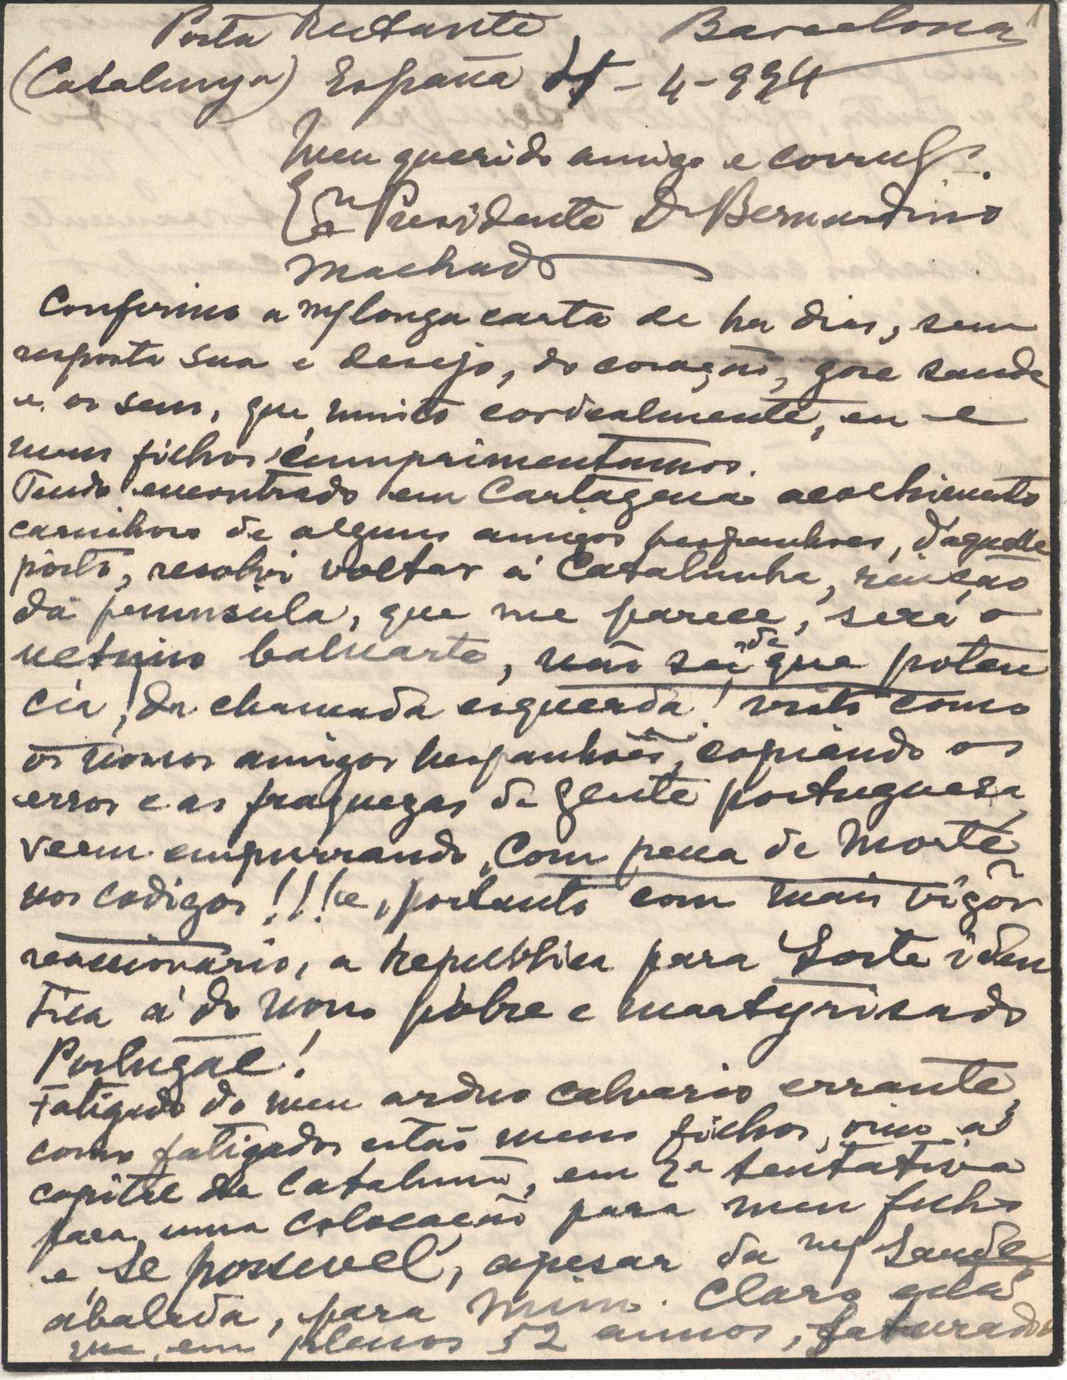 Posta Restante Barcelona 1
(Catalunya) España - 4 - 934
Meu querido amigo e correlg.
Exmo Presidente Dr Bernardino
Machado
Confirmo a m/ longa carta de ha dias, sem
resposta sua e desejo, do coração, gose saude
e os seus, que, muito cordealmente, eu e
meus filhos cumprimentamos.
Tendo encontrado em Cartagena acolhimento
carinhoso de alguns amigos hespanhoes, d'aquelle
pôrto, resolvi voltar á Catalunha, rincão
da peninsula, que me parece, será o
ultimo baluarte, não sei de que poten
cia, da chamada esquerda! visto como
os nossos amigos hespanhoes, copiando os
erros e as fraquezas da gente portuguesa,
veem empurrando, com pena de Morte
nos codigos!!! e, portanto com mais vigôr
reaccionário, a Republica para Sorte iden
tica á do nosso pobre e martyrisado
Portugal!
Fatigado do meu arduo calvario errante,
como fatigados estão meus filhos, vim á
capital da Catalunha, em 2ª tentativa
para uma colocação para meu filho
e, se possivel, apesar da m/ Saude
abalada, para mim. Claro está
que, em plenos 52 annos, faturado